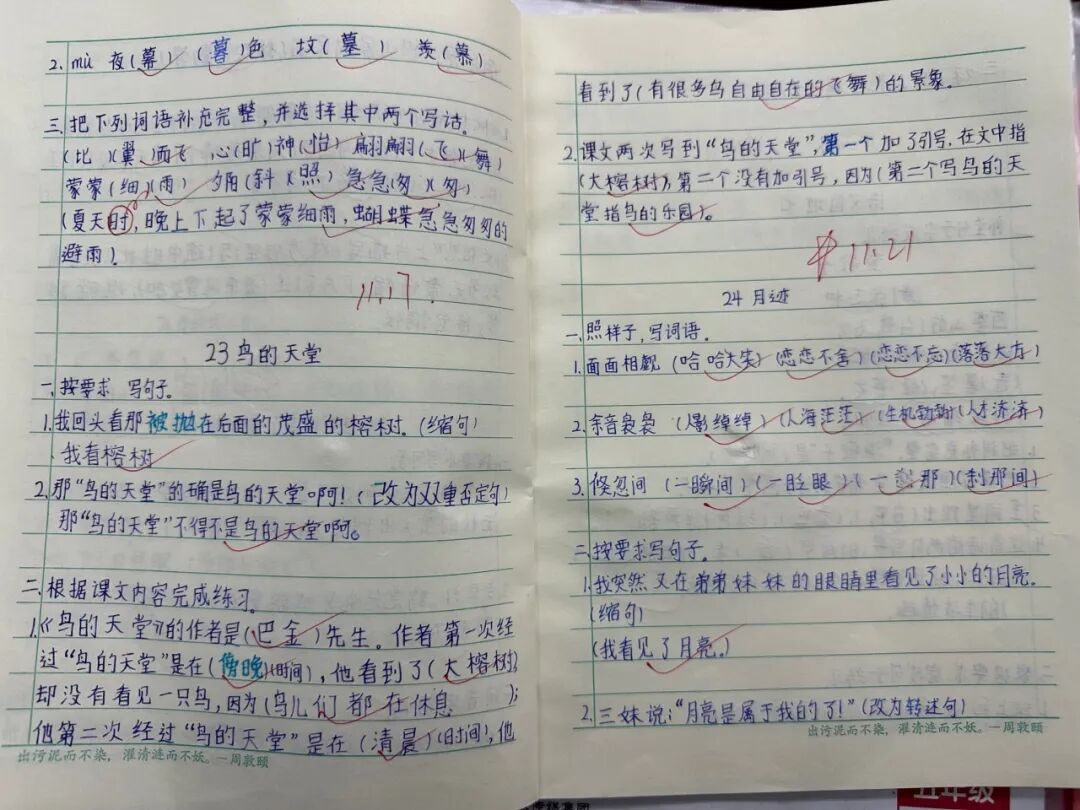 2. mù 夜(幕) (暮)色 坟(墓) 羡(慕)
三.把下列词语补充完整,并选择其中两个写话。
(比)(翼)而飞 心(旷)神(怡) 翩翩(飞)(舞)
蒙蒙(细)(雨) 夕阳(斜)(照) 急急(匆)(匆)
(夏天时,晚上下起了蒙蒙细雨,蝴蝶急急匆匆的
避雨)
11.17.
23鸟的天堂
一.按要求 写句子。
1.我回头看那被抛在后面的茂盛的榕树.(缩句)
我看榕树
2.那“鸟的天堂”的确是鸟的天堂啊!(改为双重否定句)
那“鸟的天堂”不得不是鸟的天堂啊。
二.根据课文内容完成练习.
1.《鸟的天堂》的作者是(巴金)先生.作者第一次经
过“鸟的天堂”是在(傍晚)(时间),他看到了(大榕树)
却没有看见一只鸟,因为(鸟儿们都在休息);
他第二次经过“鸟的天堂”是在(清晨)(时间),他
出污泥而不染,濯清涟而不妖。—周敦颐
看到了(有很多鸟自由自在的飞舞)的景象.
2.课文两次写到“鸟的天堂”,第一个加了引号,在文中指
(大榕树),第二个没有加引号,因为(第二个写鸟的天
堂指鸟的乐园)。
11.21
24月迹
一.照样子,写词语.
1.面面相觑 (哈哈大笑)(恋恋不舍)(恋恋不忘)(落落大方)
2.余音袅袅 (人影绰绰)(人海茫茫)(生机勃勃)(人才济济)
3.倏忽间 (一瞬间)(一眨眼)(一刹那)(刹那间)
二.按要求写句子.
1.我突然又在弟弟妹妹的眼睛里看见了小小的月亮.
(缩句)
(我看见了月亮.)
2.三妹说:“月亮是属于我的了!”(改为转述句)
出污泥而不染,濯清涟而不妖。—周敦颐
五年级